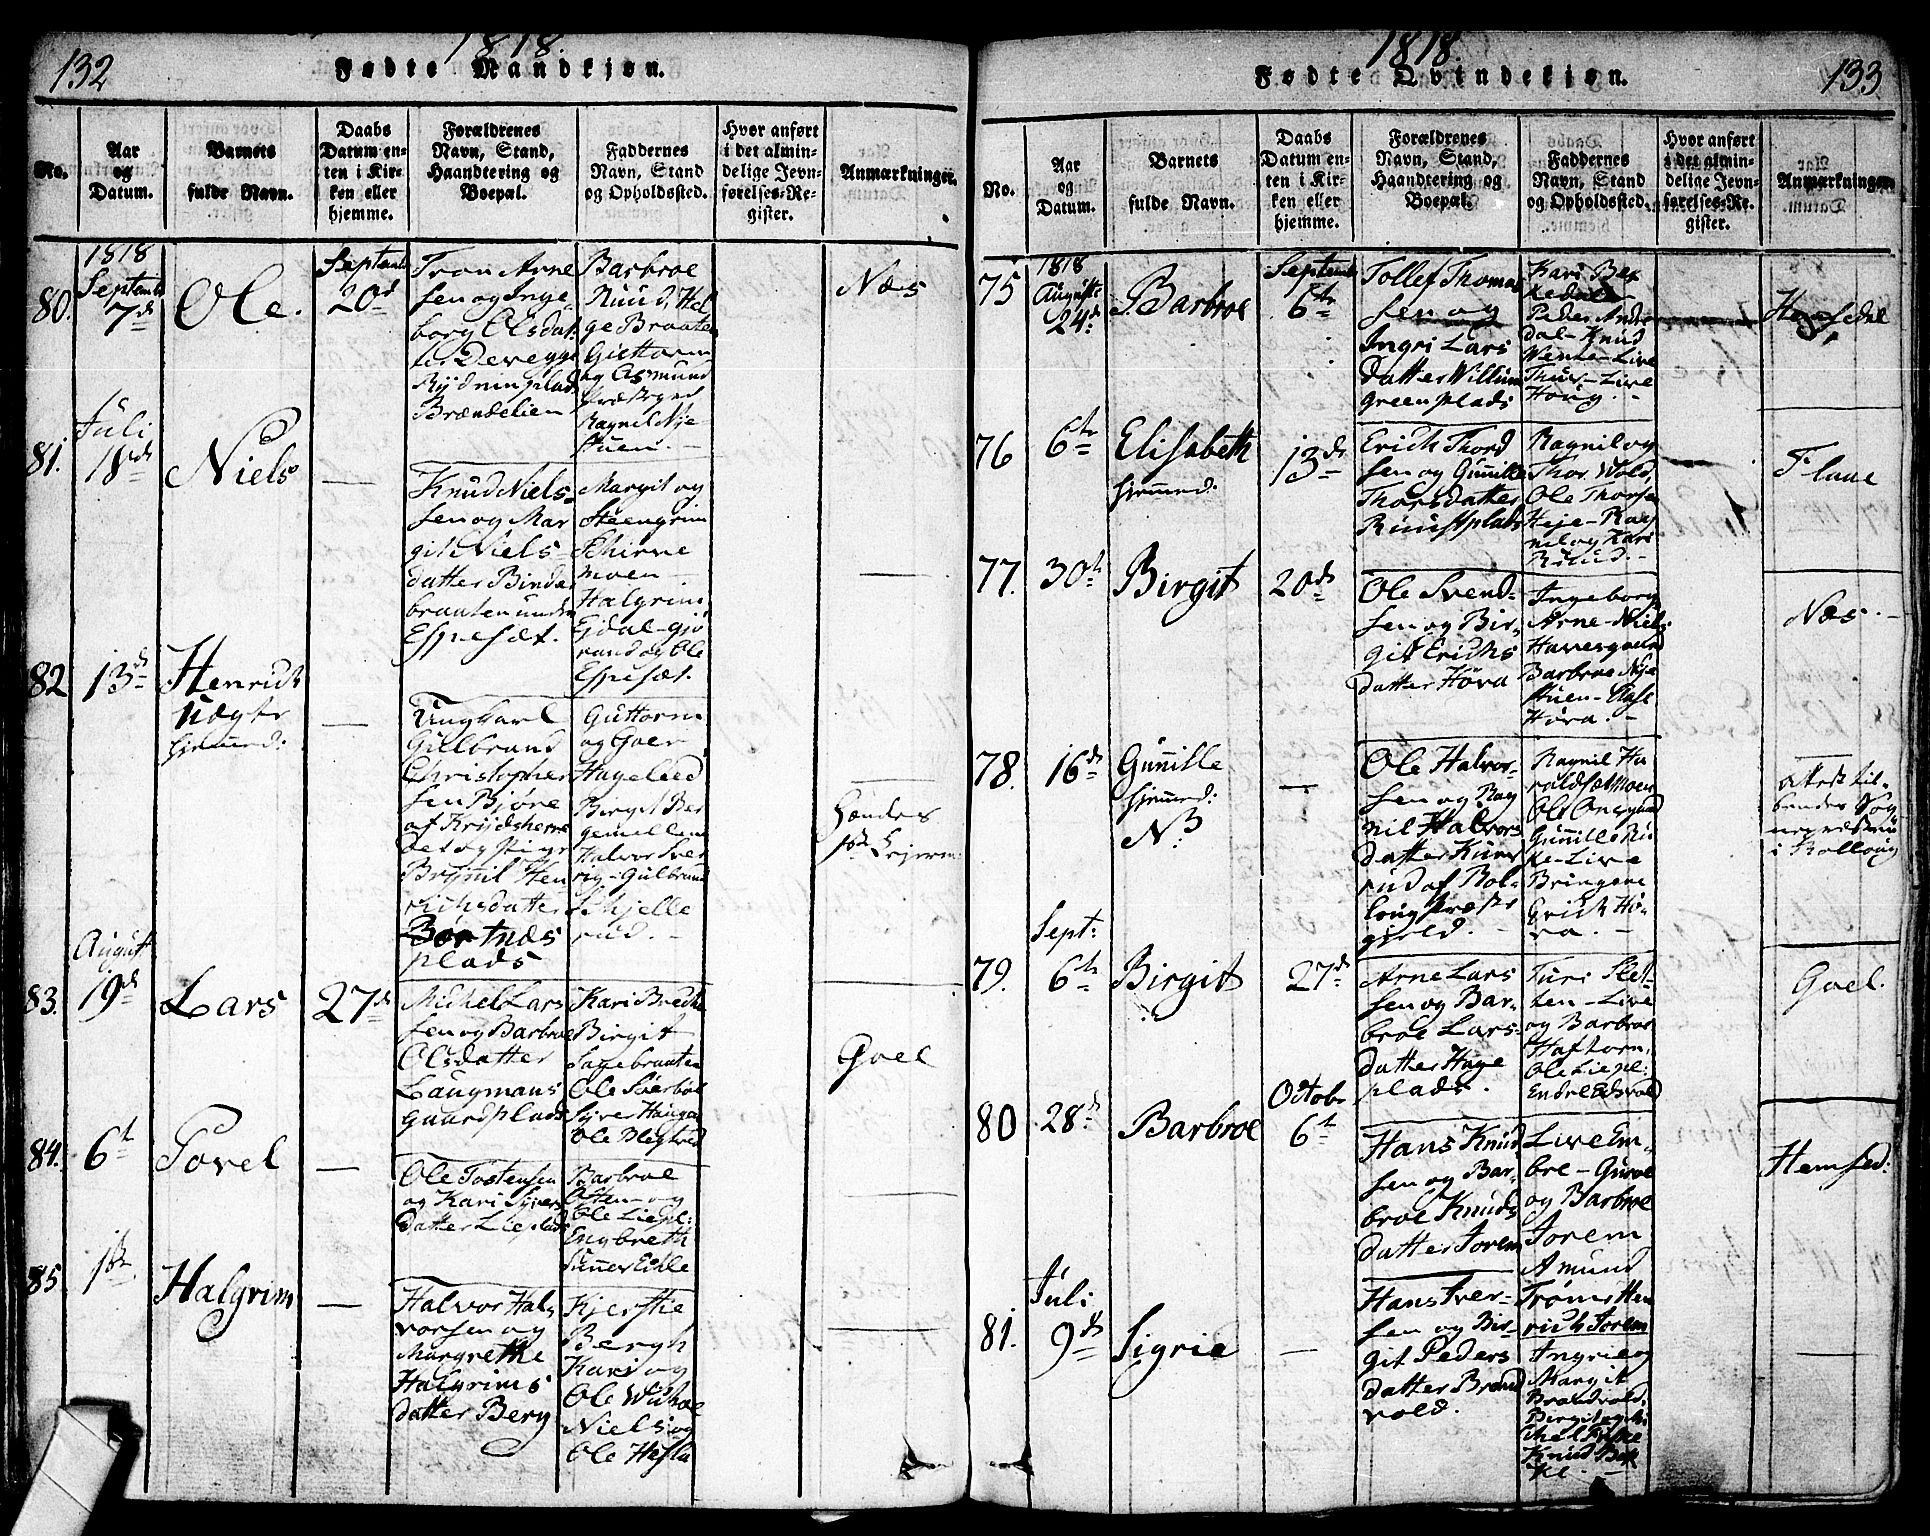 132
1818.
Fødte Mandkjøn.
No.
Aar
og
Datum.
Barnets
fulde Navn.
Daabs
Datum en-
ten i Kir-
ken eller
hjemme.
Forældrenes
Navn, Stand,
Haandtering og
Boepæl.
Faddernes
Navn, Stand
og Opholdssted.
Hvor anført
i det almin-
delige Jevn-
førelses-Re-
gister.
Anmærkninger.
80.
1818
Septemb
7de
Ole.
Septemb
20d
Tron Arne
sen og Inge-
borg Olsdat-
ter
plad
Brændelien
Barbroe
Ruud, Hel
ge Braaten
Guttorm
og Asmund
Ragnil Nje
stuen.
Næs
81.
Juli
18de
Niels
—
Knud Niels-
sen og Mar
git Niels-
datter Binde
braaten under
Espesæt.
Margit og
Steengrim
Skirve
moen
Halgrim
Ejdal - Gjø
rand og Ole
Espesæt.
—
82
13de
Henrich
hjemmed:
—
Ungkarl
Gulbrand
Christopher
sen Bjøre
af Krydsherre
det og Pige
Bryniil Hen
richsdatter
Børtnæs
plads
Guttorm
og Goer
Hageleed
Birgit Ber
gemellem
Halvor Sver
rig - Gulbrand
Skjelle
rud.
Hendes
83.
August
19de
Lars
27de
Michel Lars
sen og Barbroe
Olsdatter
Laugmans
guardplads
Kari Brecke
Birgit
Sagebraaten
Ole Sørbøl
Syver Haugen
Ole
Goel
84.
6t
Povel
—
Ole Tostensen
og Kari Syvers
datter Lieplads
Barbroe
Ole Liepl:
Engbreth
—
85
1ste
Halgrim
—
Halvor Hal-
vorsen og
Margrethe
Halgrims
datter Berg
Kjerstie
Bergh
Kari og
Ole
Niels og
Ole Hefla
—
1818.
Fødte Qvindekjøn.
133
No.
Aar
og
Datum.
Barnets
fulde Navn.
Daabs
Datum en-
ten i Kir-
ken eller
hjemme.
Forældrenes
Navn, Stand,
Haandtering og
Boepæl.
Faddernes
Navn, Stand
og Opholdssted.
Hvor anført
i det almin-
delige Jevn-
førelses-Re-
gister.
Anmærkninger
75
1818
Auguste
24de
Barbroe
Septemb
6te
Tollef Thomas
sen og
Ingri Lars
datter Willum
green plads
Kari Bek
kedal
Peder Andr
dal - Knud
Live
Thuv - Live
Houg. -
Hemsedal
76
6te
Elisabeth
hjemmed:
13de
Erich Thord
sen og Gunille
Thorsdatter
Ruustplads
Ragnil og
Thor Wold,
Ole Thorsen
Heje - Rag
nil og Kari
Ruud. -
Flaae
77.
30te
Birgit
20de
Ole Svend-
sen og Bir-
git Erichs
datter Høva
Ingeborg
Arne - Niels
Haversgaard
Barbroe Nye
stuen - Olaf
Høva. -
Næs. -
78.
16de
Gunille
hjemmed:
NB
—
Ole Halvor-
sen og Rag
nil Halvors
datter
rud af Rol-
loug Præste
gield. -
Ragnil Ha
roldsæthmoen
Ole
Gunille
Live
Bringene
Erick Hø-
va. -
Attest til
i Rolloug
79.
Sept:
6te
Birgit
27de
Arne Lars
sen og Bar-
broe Lars-
datter Hage
plads.
Turi Slet-
ten - Live
og Barbroe
Haftorn,
Ole Liepl:
Endre Edsvold
Goel.
80
28de
Barbroe
Octob:
6te
Hans Knud
sen og Bar-
broe Knuds
datter Torem
Live Em-
bre - Guroe
og Barbroe
Torem
Amund
Hemsed:
81.
Juli
9de
Sigrie
—
Hans Iver-
sen og Bir-
git Peders
datter Brand
vold.
Trøms Hen
rich Torem
Ingrie og
Margit
Brandvold,
Birgit og Mi
chel
Knud Bek
Ke. -
—